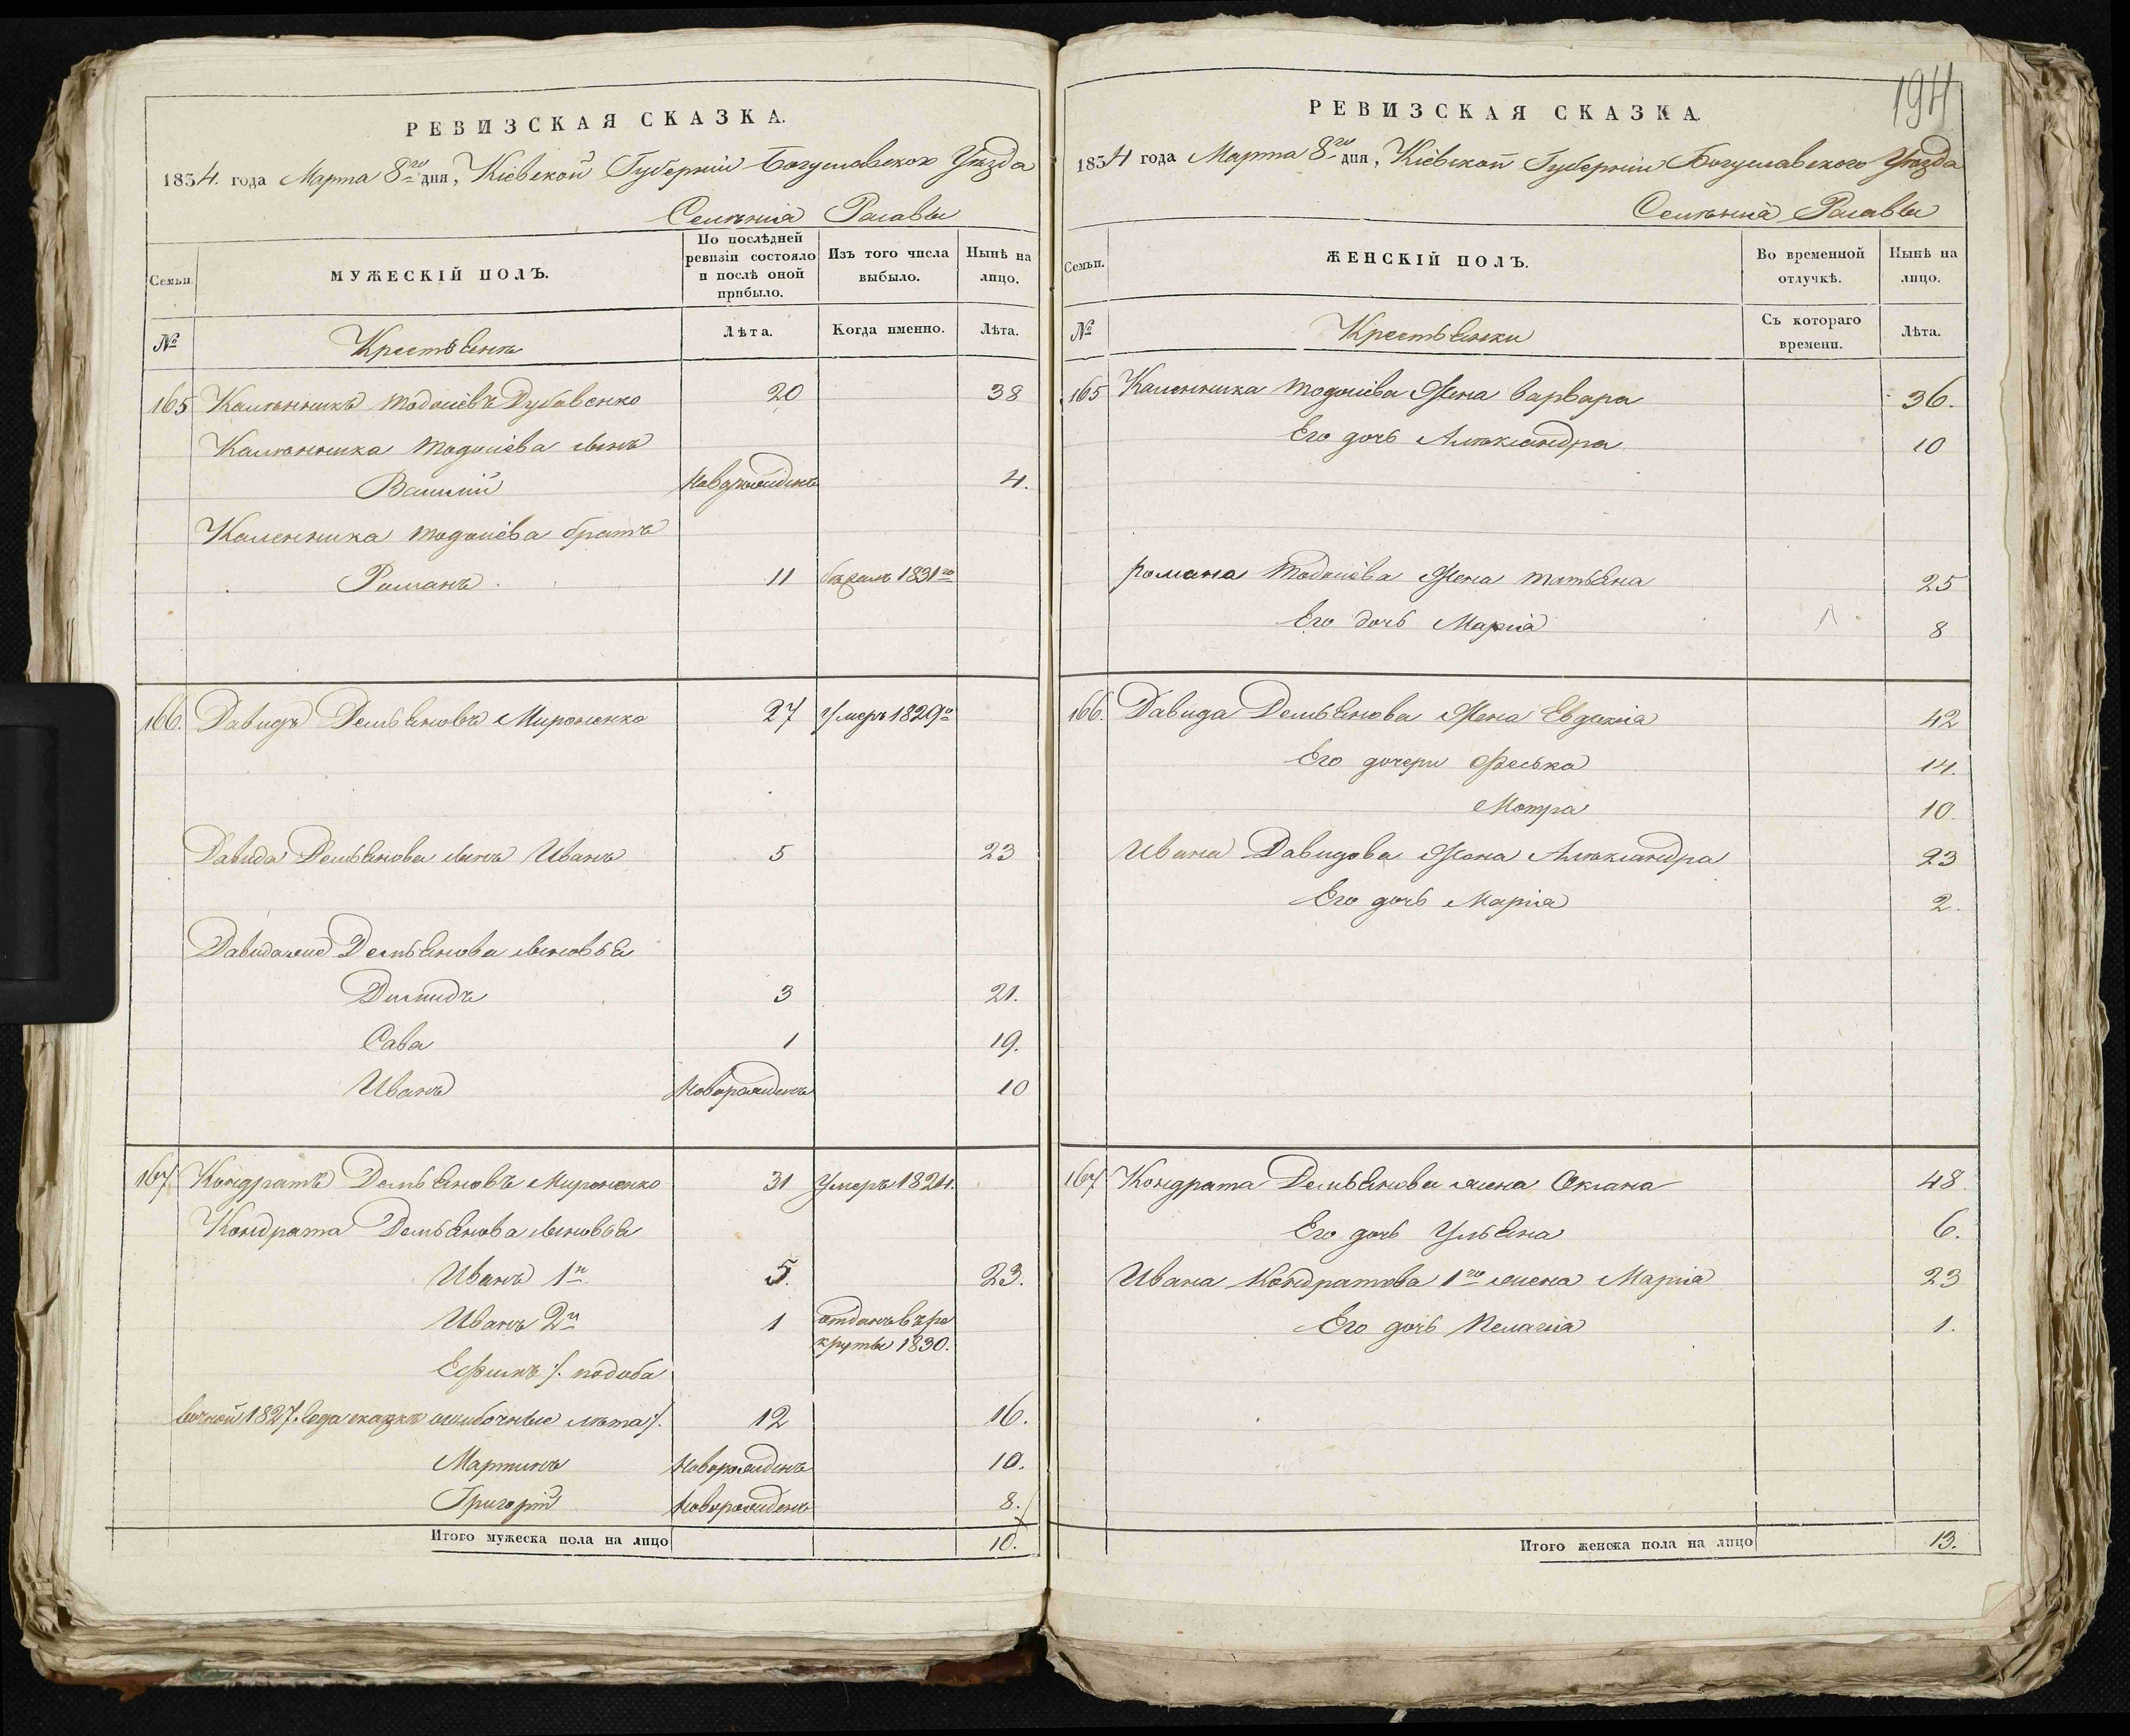 РЕВИЗСКАЯ СКАЗКА.
1834. года Марта 8го дня, Кіевской Губерніи Богуславского Уѣзда
Селѣнія Расавы
Семьи.
МУЖЕСКІЙ ПОЛЪ.
По послѣдней ревизіи состояло и послѣ оной прибыло.
Изъ того числа выбыло.
Нынѣ на лицо.
№
Крестьянъ
Лѣта.
Когда именно.
Лѣта.
165 Калѣнникъ Тодосіевъ Дубовенко 20 38
Калѣнника Тодосіева сынъ
Василій новорожденъ 4.
Каленника Тодосіева братъ
Романъ 11 1831го
166. Давидъ Демьяновъ Мироненко 27 Умеръ 1829го
Давида Демьянова сынъ Иванъ 5 23
Демьянова сыновья
3 21.
Сава 1 19.
Иванъ Новорожденъ 10
167 Кондратъ Демьяновъ Мироненко 31 Умеръ 1824.
Кондрата Демьянова сыновья
Иванъ 1й 5. 23.
Иванъ 2й 1 отданъ въ ре
круты 1830.
Ефимъ /. подоба
вочной 1827. года сказкѣ ошибочные лѣта /. 12 16.
Мартинъ Новорожденъ 10.
Григорій Новорожденъ 8.
Итого мужеска пола на лицо 10.
194
РЕВИЗСКАЯ СКАЗКА.
1834 года Марта 8го дня, Кіевской Губерніи Богуславского Уѣзда
Селѣнія Расавы
Семьи.
ЖЕНСКІЙ ПОЛЪ.
Во временной отлучкѣ.
Нынѣ на лицо.
№
Крестьянки
Съ котораго времени.
Лѣта.
165 Каленника Тодосіева Жена Варвара 36.
Его дочь Алѣксандра 10
Романа Тодосіева Жена Татьяна 25
Его дочь Марія 8
166. Давида Демьянова Жена Евдокія 42
Его дочери Феська 14.
Мотра 10.
Ивана Давидова Жена Алѣксандра 23
Его дочь Марія 2.
167 Кондрата Демьянова жена Оксана 48.
Его дочь Ульяна 6.
Ивана Кондратова 1го жена Марія 23
Его дочь Пелагія 1.
Итого женска пола на лицо 13.